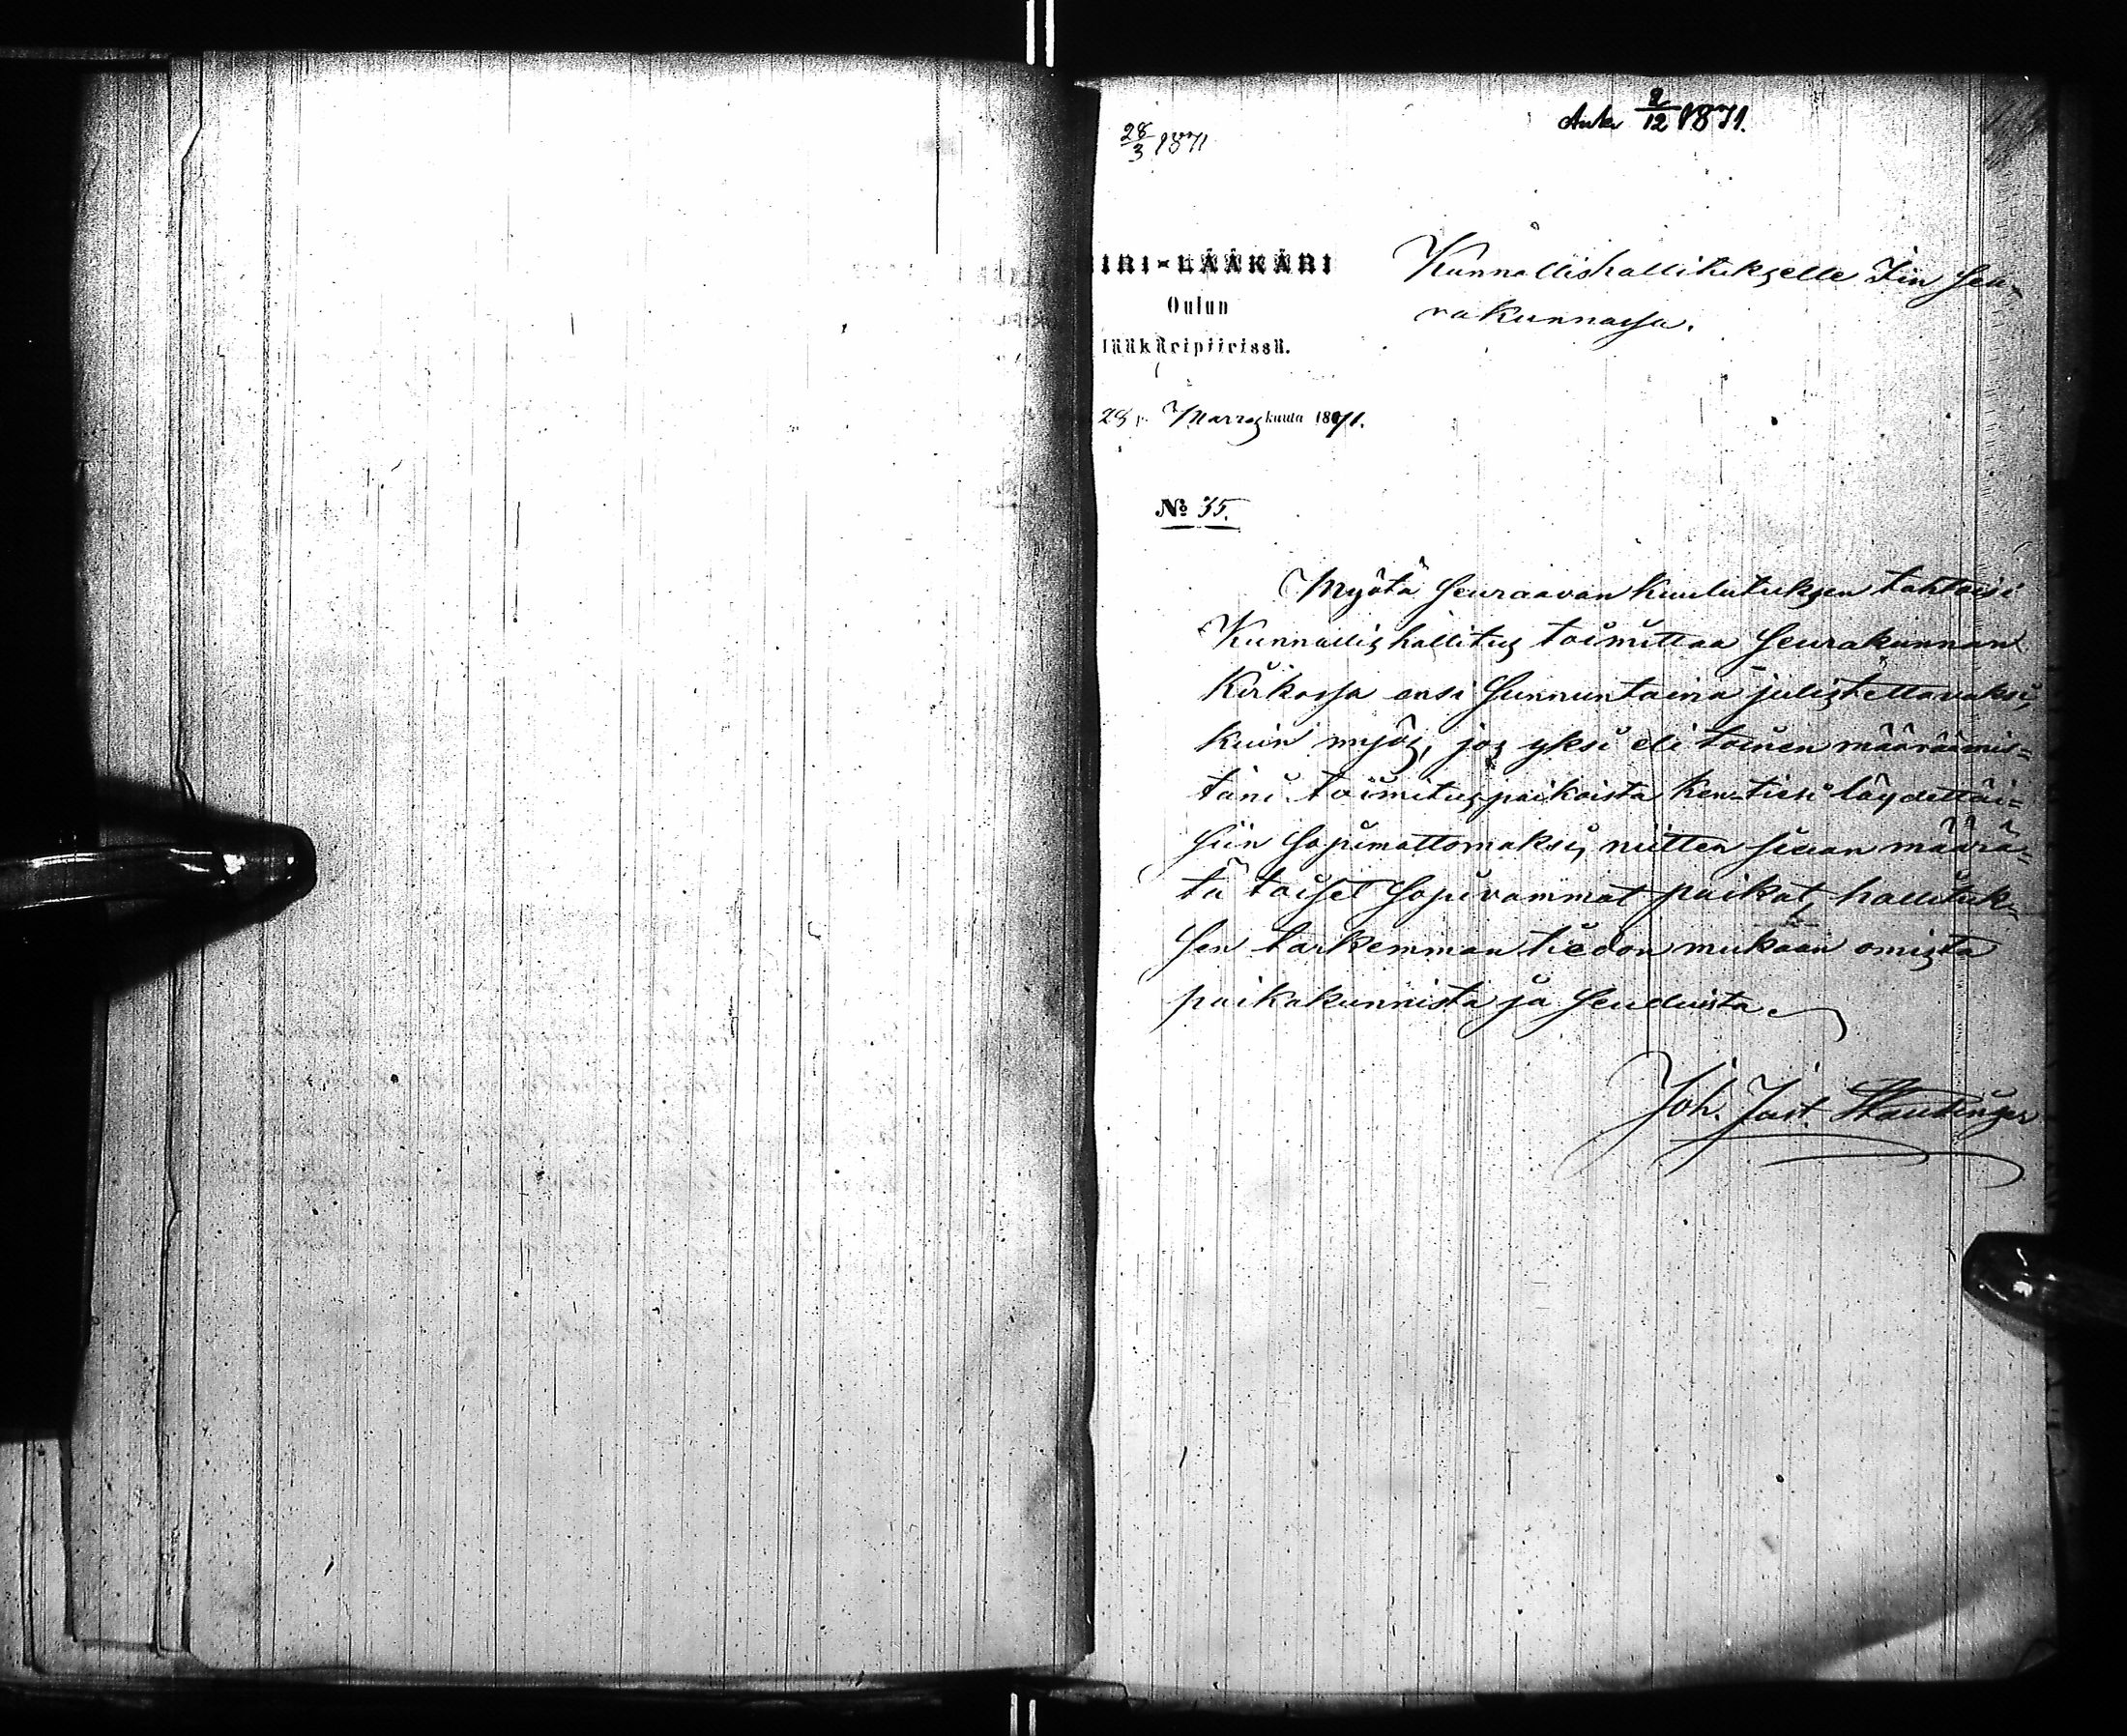 Ank 2/12 1871.
28/3 1871
IIRI-LÄÄKÄRI
Oulun
lääkäripiirissä.
28 p. Marras kuuta 1871.
No 35.
Kunnallishallitukselle Iin Seu-
rakunnassa.
Myötä seuraavan kuulutuksen tahtoisi
Kunnallishallitus toimittaa Seurakunnan
Kirkossa ensi Sunnuntaina julistettavaksi,
kuin myös, jos yksi eli toinen määräämis-
täni toimituspaikoista ken-tiesi löydettäi-
siin sopimattomaksi, niitten siaan määrä-
tä toiset sopivammat paikat, hallituk-
sen tarkemman tiedon mukaan omista
paikakunnista ja seuduista.
Joh. Just. Staudinger